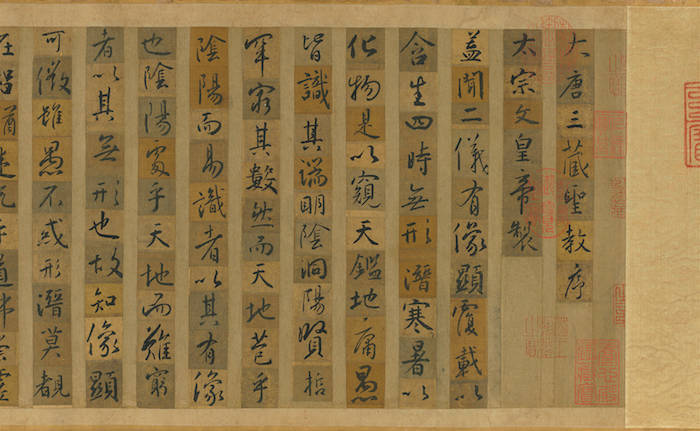 大唐三藏聖教序
太宗文皇帝製
蓋聞二儀有像顯覆載以
含生四時無形潛寒暑以
化物是以窺天鑑地庸愚
皆識其端明陰洞陽賢哲
罕窮其數然而天地苞乎
陰陽而易識者以其有像
也陰陽處乎天地而難窮
者以其無形也故知像顯
可徵雖愚不惑形潛莫覩
在智猶迷況乎道崇虛